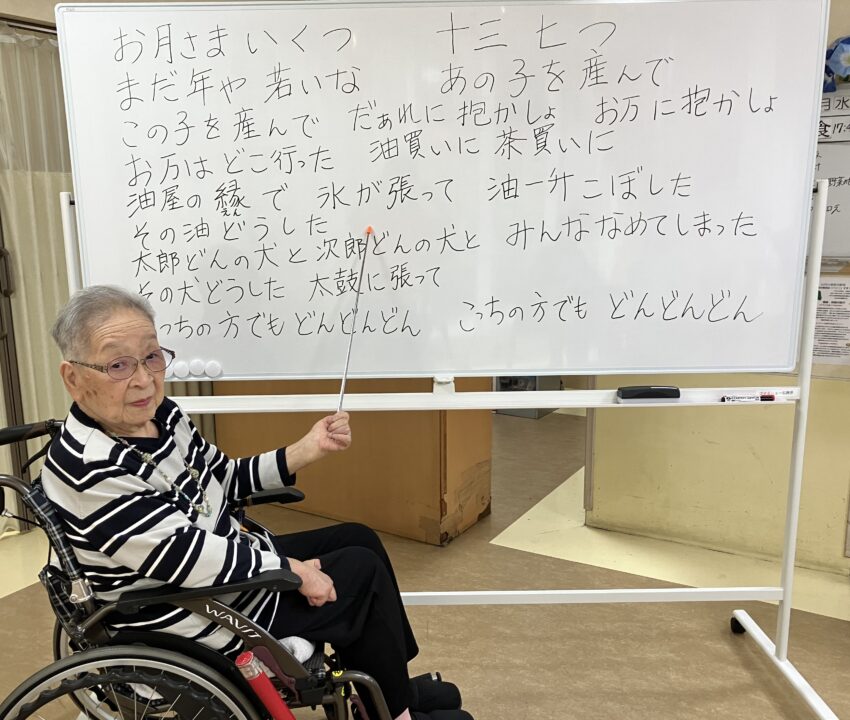 お月さま いくつ　十三 七つ
まだ年や 若いな　あの子を 産んで
この子を 産んで　だぁれに 抱かしょ　お万に抱かしょ
お万は どこ行った　油買いに 茶買いに
油屋の 縁で　氷が張って　油一升こぼした
えん
その油 どうした
太郎どんの犬と 次郎どんの犬と　みんななめてしまった
その犬どうした　太鼓に張って
っちの方でも どんどんどん　こっちの方でも どんどんどん
月 水
食 17:4
WAVIT